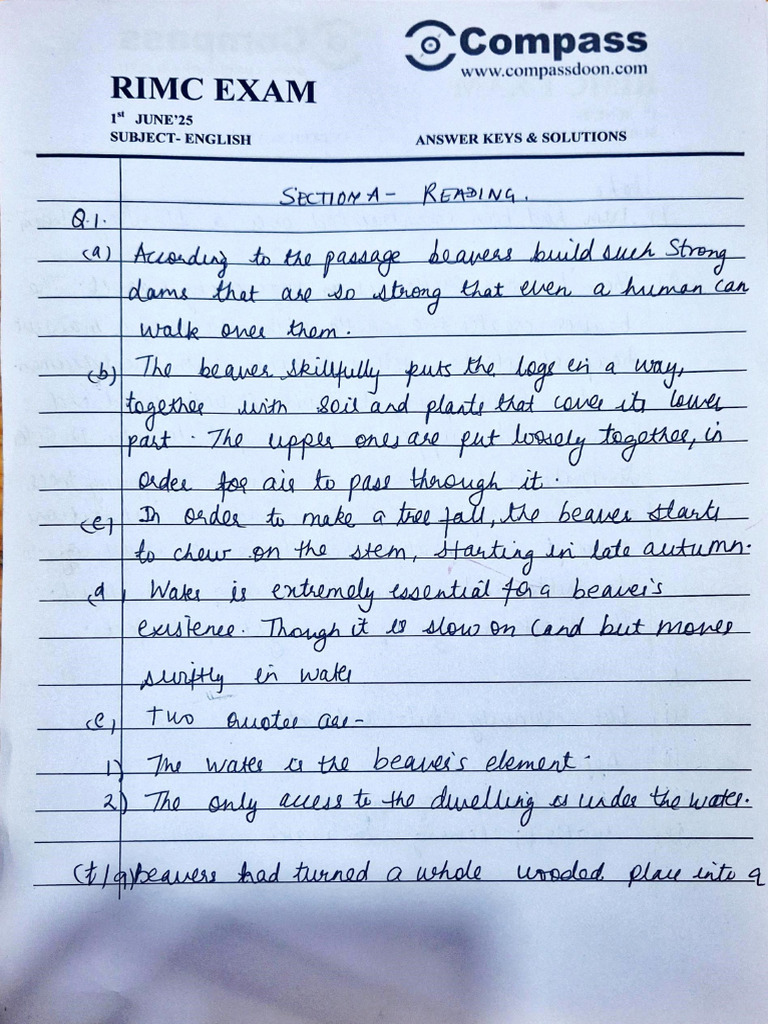 Compass
www.compassdoon.com
RIMC EXAM
1st JUNE'25
SUBJECT- ENGLISH
ANSWER KEYS & SOLUTIONS
SECTION A - READING.
Q.1.
(a) According to the passage beavers build such strong
dams that are so strong that even a human can
walk over them.
(b) The beaver skillfully puts the logs in a way,
together with soil and plants that cover its lower
part. The upper ones are put loosely together, in
order for air to pass through it.
(c) In order to make a tree fall, the beaver starts
to chew on the stem, starting in late autumn.
(d) Water is extremely essential for a beaver's
existence. Though it is slow on land but moves
swiftly in water
(e) Two quotes are-
1) The water is the beaver's element.
2) The only access to the dwelling is under the water.
(f/g) Beavers had turned a whole wooded place into a